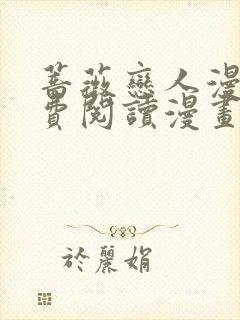 蔷薇戀人漫
費閱讀漫畫
於麗娟